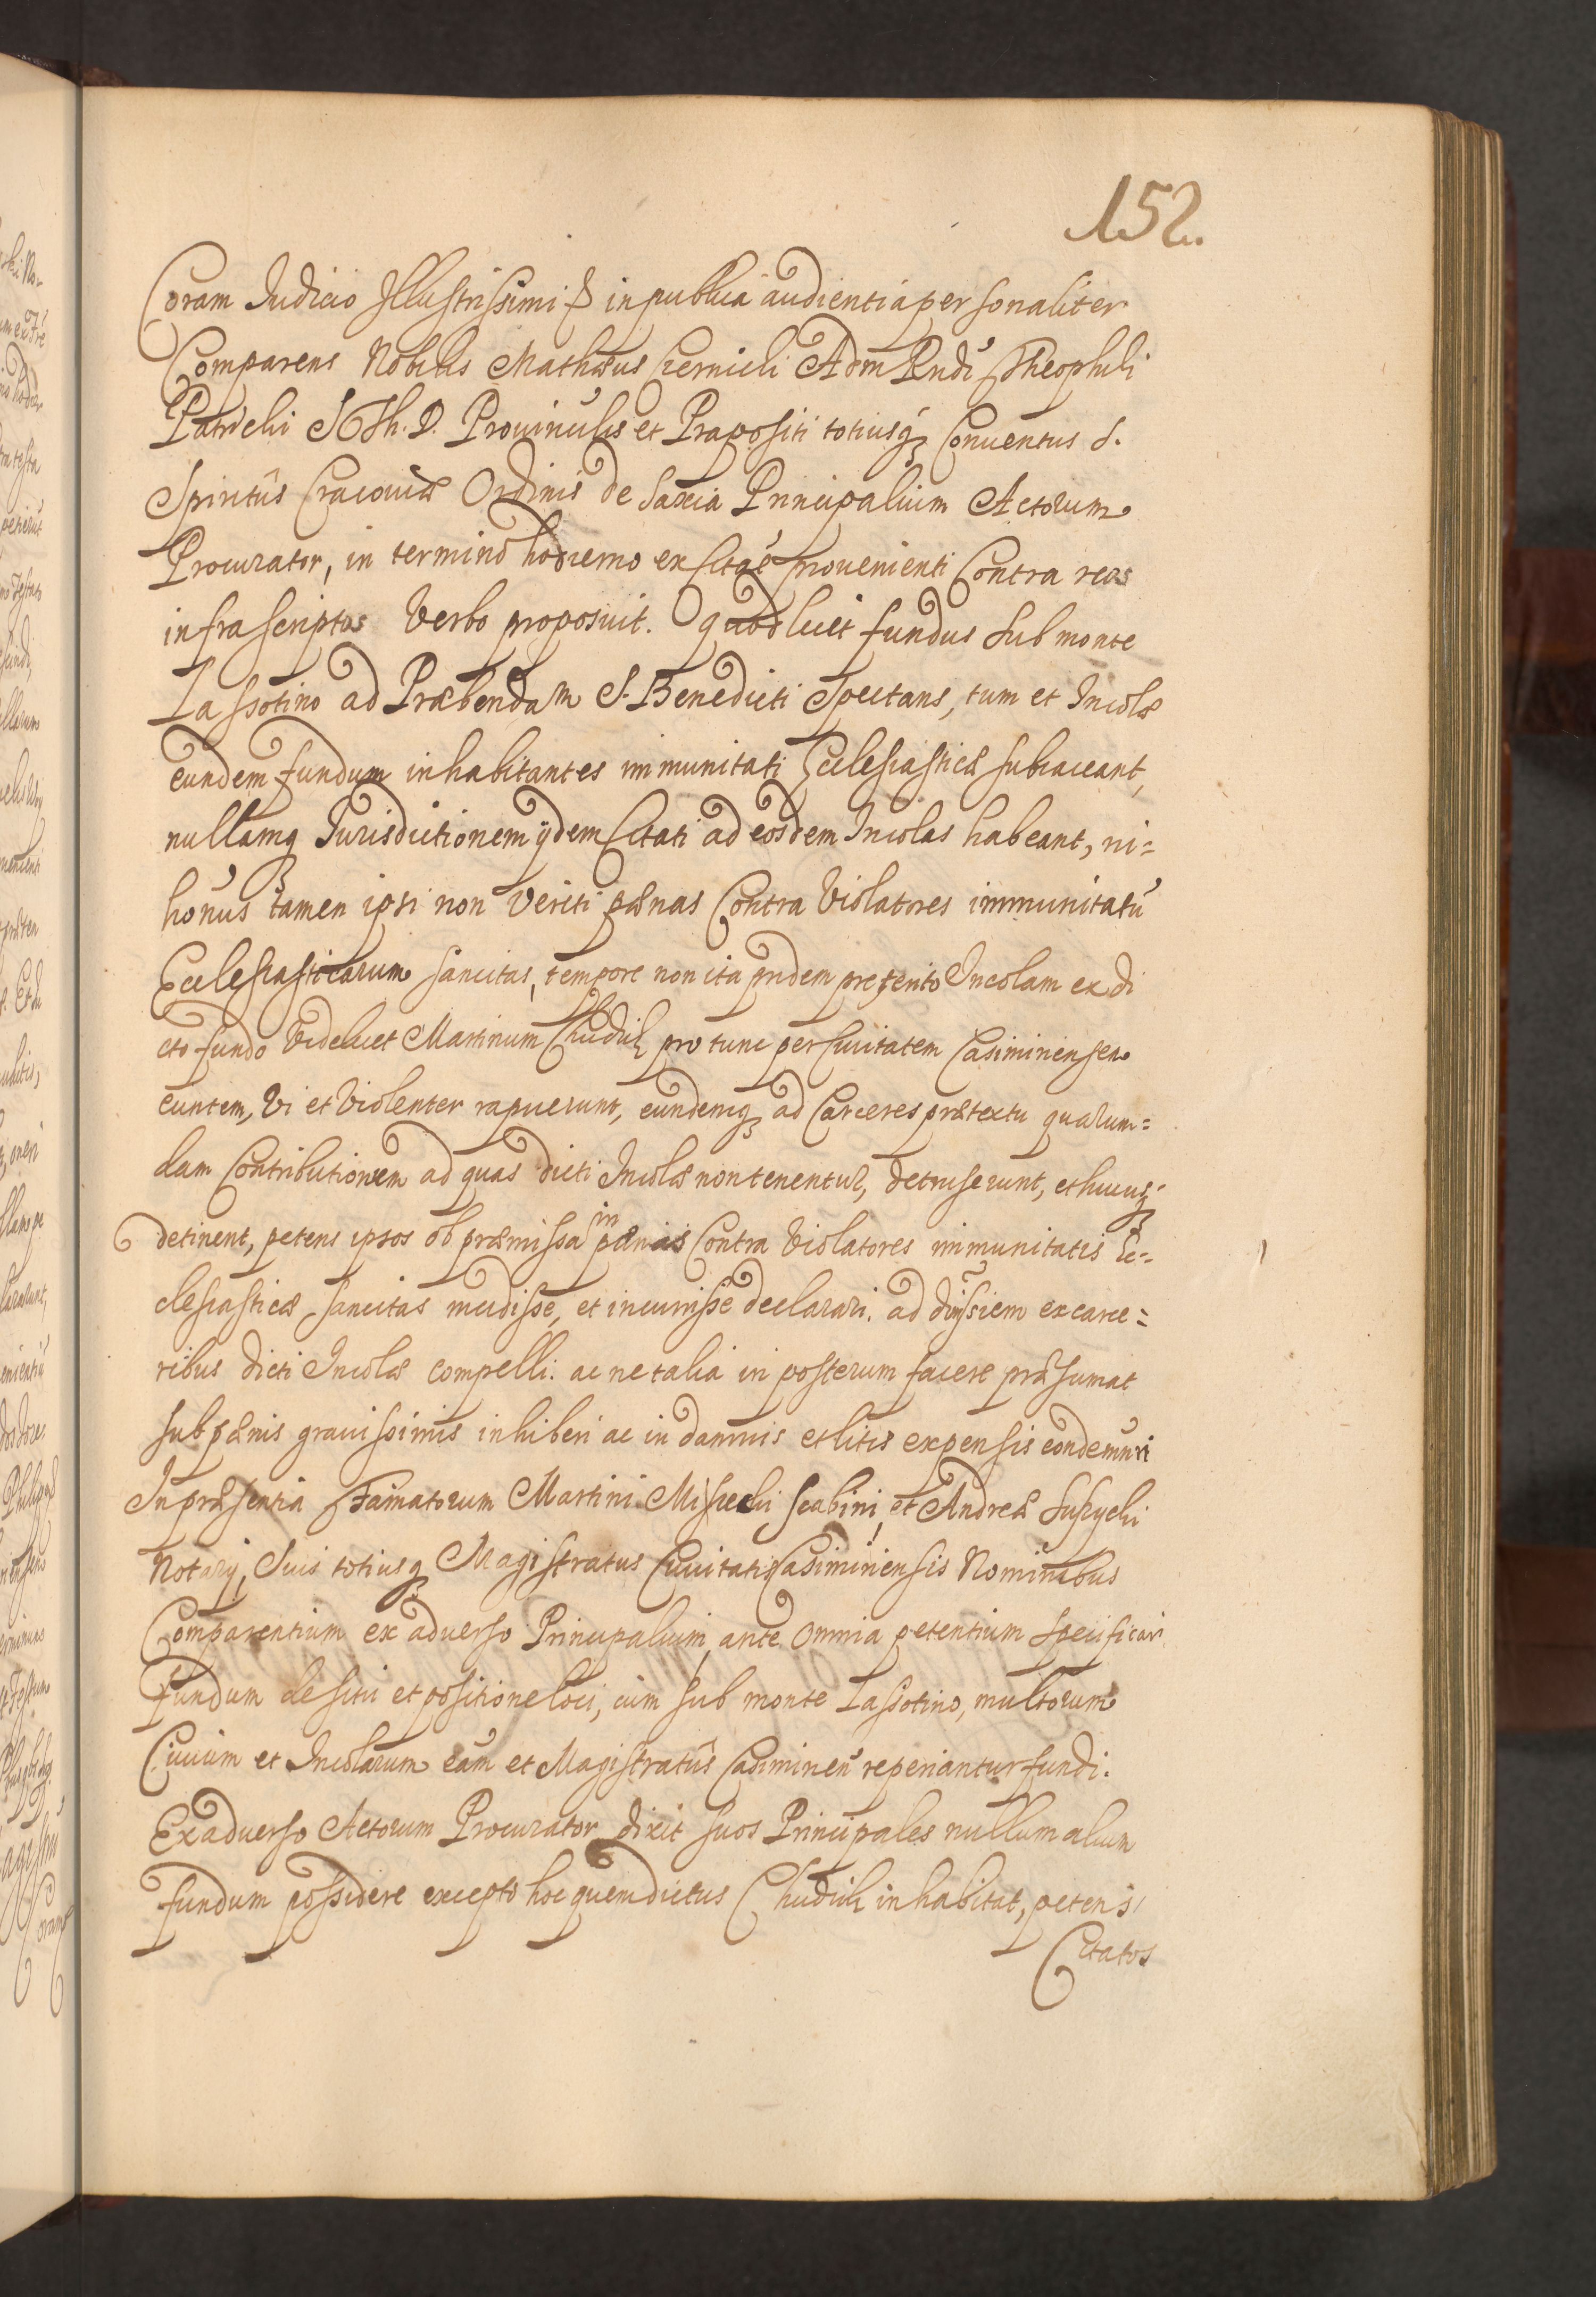 152.
Coram Judicio Illustrissimi in publica audientia personaliter
Comparens Nobilis Mathæus Czernicki Adm Rndi Theophili
Patricki STh. D. Prouincialis et Præpositi totiusq Conuentus S.
Spiritûs Cracouiæ Ordinis de Saxia Principalium Actorum
Procurator, in termino hodierno ex citãe prouenienti Contra reos
infrascriptos Verbo proposuit. Quod licet fundus sub monte
Lassotino ad Præbendam S. Benedicti Spectans, tum et Incolæ
eundem fundum inhabitantes immunitati Ecclesiasticæ subiaceant,
nullamq Jurisdictionem ijdem Citati ad eosdem Incolas habeant, ni=
honũs tamen ipsi non Veriti pænas Contra Violatores immunitatũ
Ecclesiasticarum sancitas, tempore non ita pridem præterito Incolam ex di
cto fundo Videlicet Martinum Chudzik pro tunc per Ciuitatem Casimiriensem
euntem, Vi et Violenter rapuerunt, eundemq ad Carceres prætextu quarum=
dam Contributionem ad quas dicti Incolæ non tenentur, detruserunt, et hucusq
detinent, petens ipsos ob præmissa in pænas Contra Violatores immunitatis Ec=
clesiasticæ sancitas incidisse, et incurrisse declarari. ad dimissiem ex carce=
ribus dicti Incolæ compelli. ac ne talia in posterum facere præsumat
sub pænis grauissimis inhiberi ac in damnis et litis expensis condemnri
In præsentia Famatorum Martini Misiecki scabini, et Andreæ Suski
Notarij, Suis totiusq Magistratus Ciuitatis Casimiriensis Nominibus
Comparentium ex aduerso Principalium, ante omnia petentium specificari
fundum de situ et positione loci, cum sub monte Lassotino, multorum
Ciuium et Incolarum eam et Magistratûs Casimirien reperiantur fundi.
Ex aduerso Actorum Procurator dixit suos Principales nullum alium
fundum possidere excepto hoc quem dictus Chudzik inhabitat, petens
Citatos